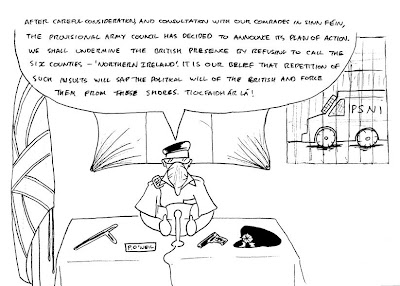 AFTER CAREFUL CONSIDERATION, AND CONSULTATION WITH OUR COMRADES IN SINN FÉIN,
THE PROVISIONAL ARMY COUNCIL HAS DECIDED TO ANNOUNCE ITS PLAN OF ACTION.
WE SHALL UNDERMINE THE BRITISH PRESENCE BY REFUSING TO CALL THE
SIX COUNTIES - 'NORTHERN IRELAND'. IT IS OUR BELIEF THAT REPETITION OF
SUCH INSULTS WILL SAP THE POLITICAL WILL OF THE BRITISH AND FORCE
THEM FROM THESE SHORES. TIOCFAIDH ÁR LÁ!
PSNI
P.O'NEIL